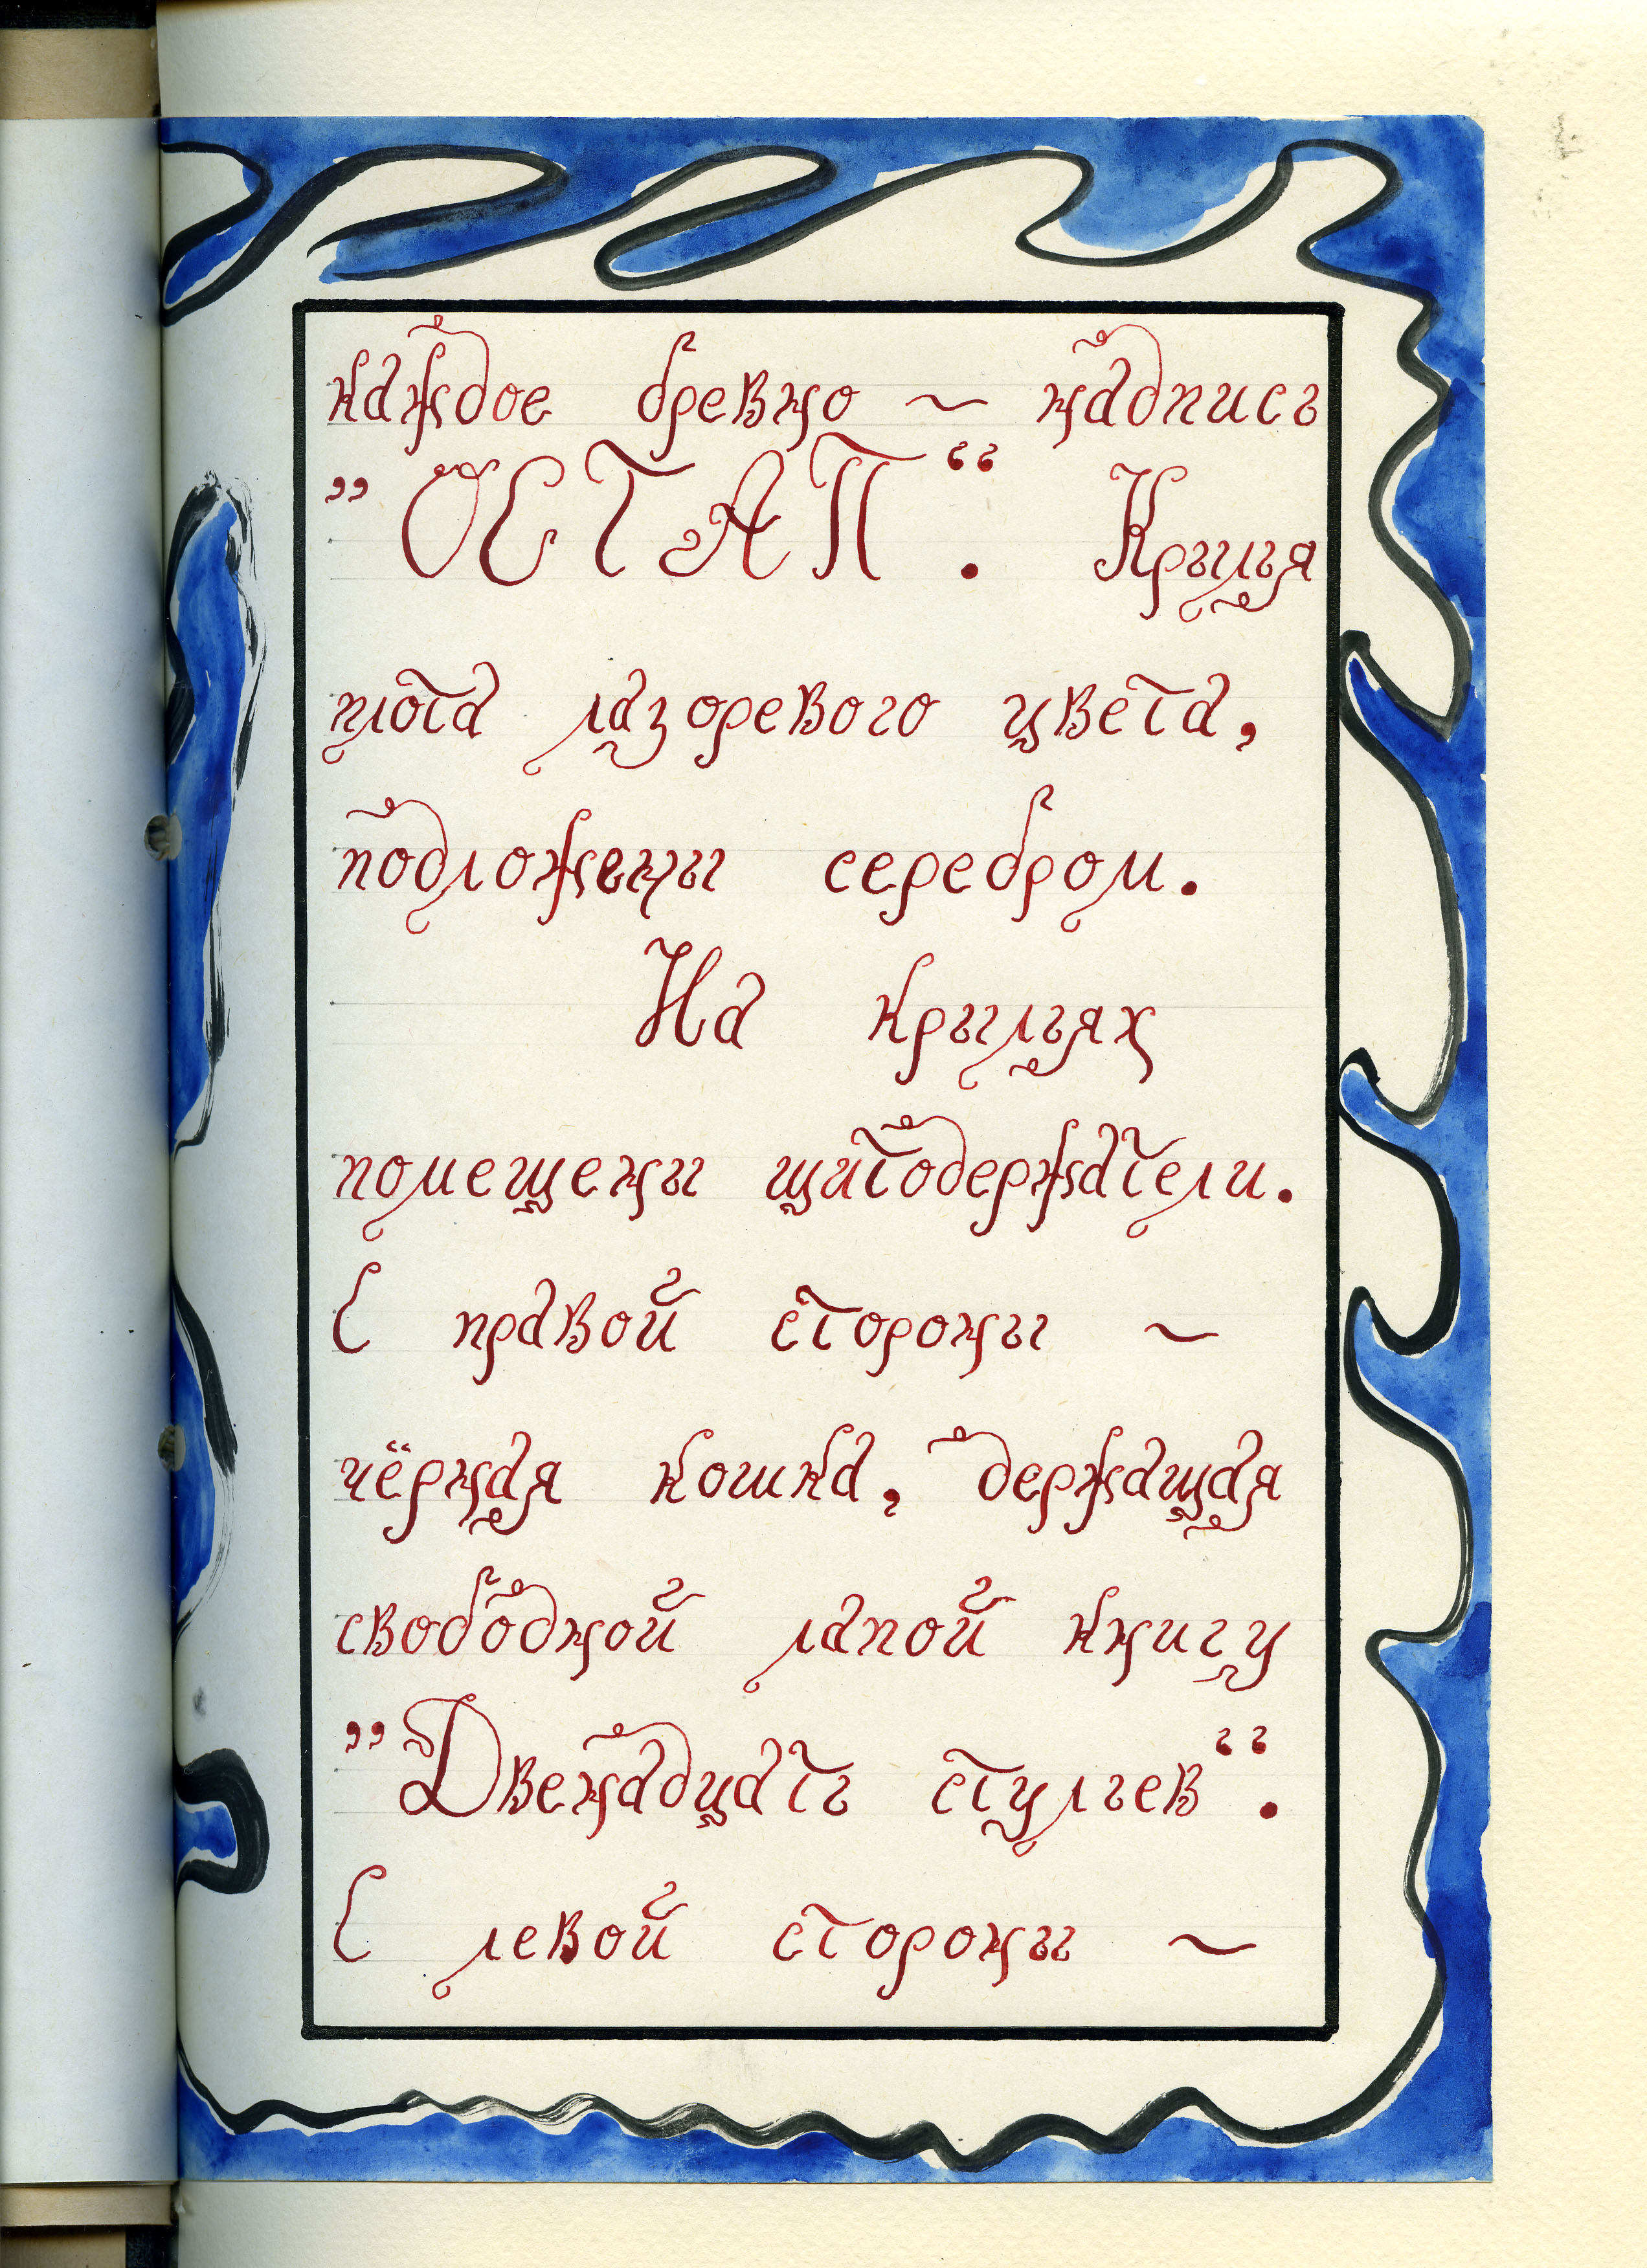 каждое бревно ~ надпись
„ОСТАП“. Крылья
плота лазоревого цвета,
подложены серебром.
На крыльях
помещены щитодержатели.
С правой стороны ~
чёрная кошка, держащая
свободной лапой книгу
„Двенадцать стульев“.
С левой стороны ~